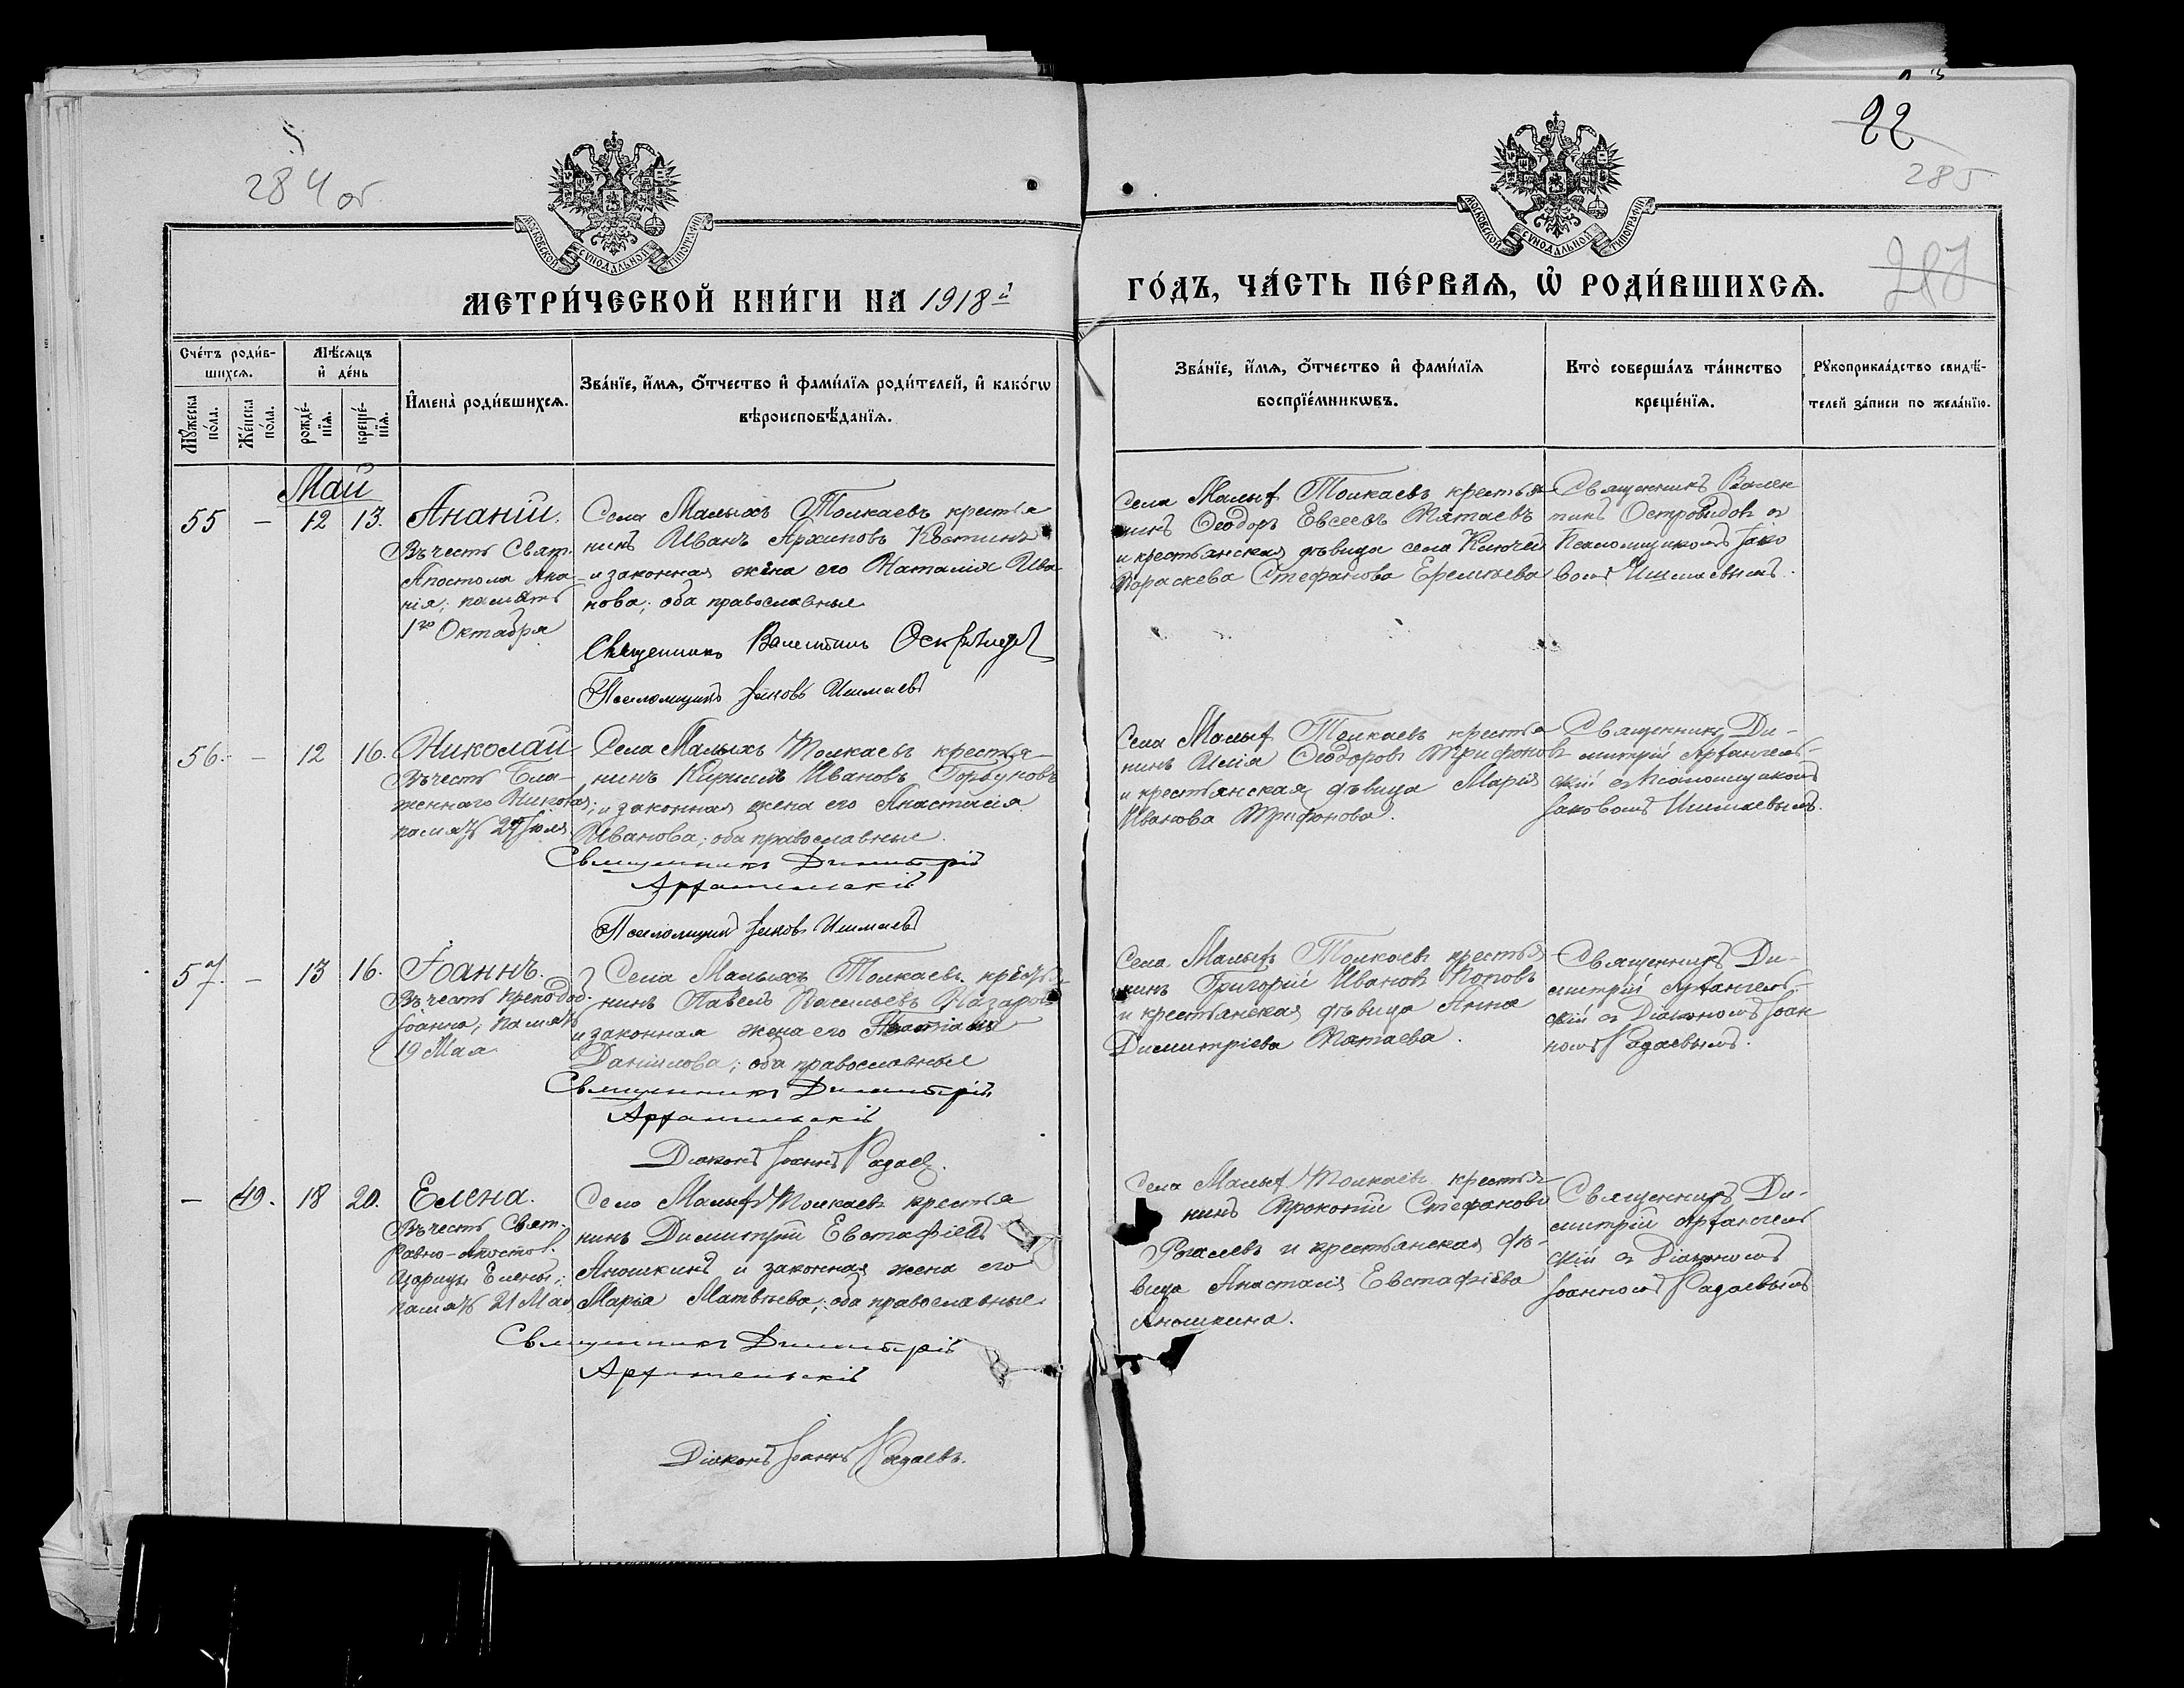 284 об
22
285
МОСКОВСКОЙ СѴНОДАЛЬНОЙ ТИПОГРАФІИ
МОСКОВСКОЙ СѴНОДАЛЬНОЙ ТИПОГРАФІИ
МЕТРИ́ЧЕСКОЙ КНИ́ГИ НА 1918й
ГО́ДЪ, ЧА́СТЬ ПЕ́РВАѦ, Ѽ РОДИ́ВШИХСѦ.
Сче́тъ роди́в-
шихсѧ.
Мѣ́сѧцъ
и҆ де́нь
И҆мена̀ роди́вшихсѧ.
Зва́нїе, и҆́мѧ, ѻ҆́тчество и҆ фами́лїѧ роди́телей, и҆ како́гѡ
вѣроисповѣ́данїѧ.
Мꙋ́жеска по́ла.
Же́нска по́ла.
рожде́-нїѧ.
креще́-нїѧ.
Зва́нїе, и҆́мѧ, ѻ҆́тчество и҆ фами́лїѧ
воспрїе́мникѡвъ.
Кто̀ соверша́лъ та́инство
креще́нїѧ.
Рꙋкоприкла́дство свидѣ́-
телей за́писи по жела́нїю.
Май
55 – 12 13. Ананій.
Въ честь Свят.
Апостола Ана-
нія; память
1го Октября
Села Малыхъ Толкаевъ крестья
нинъ Иванъ Архиповъ Костинъ
и законная жена его Наталія Ива
нова; оба православные
Священникъ Валентинъ
Псаломщикъ Іаковъ Ишмаевъ
Села Малых Толкаевъ крестья-
нинъ Ѳеодоръ Евсеевъ Пятаевъ
и крестьянская дѣвица села Ключей
Параскева Стефанова Еремѣева
Священникъ Вален
тинъ Островидовъ съ
Псаломщикомъ Іако
вомъ Ишмаевымъ.
56. – 12 16. Николай
Въ честь Бла-
женнаго Николая;
память 27 Іюля
Села Малыхъ Толкаевъ крестья-
нинъ Кириллъ Ивановъ Горбуновъ
и законная жена его Анастасія
Иванова; оба православные.
Священникъ Димитрій
Архангельскій
Псаломщикъ Іаковъ Ишмаевъ
Села Малых Толкаевъ крестья
нинъ Илія Ѳеодоровъ Трифоновъ
и крестьянская дѣвица Марія
Иванова Трифонова.
Священникъ Ди-
митрій Архангель-
скій съ Псаломщикомъ
Іаковомъ Ишмаевымъ.
57. – 13 16. Іоаннъ.
Въ честь преподоб.
Іоанна; память
19 Мая
Села Малыхъ Толкаевъ крестья-
нинъ Павелъ Васильевъ Назаровъ
и законная жена его
Даніилова; оба православные
Священникъ Димитрій
Архангельскій
Діаконъ Іоаннъ Радаевъ.
Села Малыхъ Толкаевъ крестья
нинъ Григорій Ивановъ Поповъ
и крестьянская дѣвица Анна
Димитріева Пятаева.
Священникъ Ди-
митрій Архангель-
скій съ Діакономъ Іоан
номъ Радаевымъ.
– 49. 18 20. Елена.
Въ честь Свят.
Равно-Апостол.
Царицы Елены;
память 21 Мая
Села Малых Толкаевъ крестья
нинъ Димитрій Евстафіевъ
Аношкинъ и законная жена его
Марія Матвѣева; оба православные.
Священникъ Димитрій
Архангельскій
Діаконъ Іоаннъ Радаевъ.
Села Малых Толкаевъ крестья
нинъ Прокопій Стефановъ
Рогалевъ и крестьянская дѣ-
вица Анастасія Евстафіева
Аношкина.
Священникъ Ди-
митрій Архангель
скій съ Діакономъ
Іоанномъ Радаевымъ